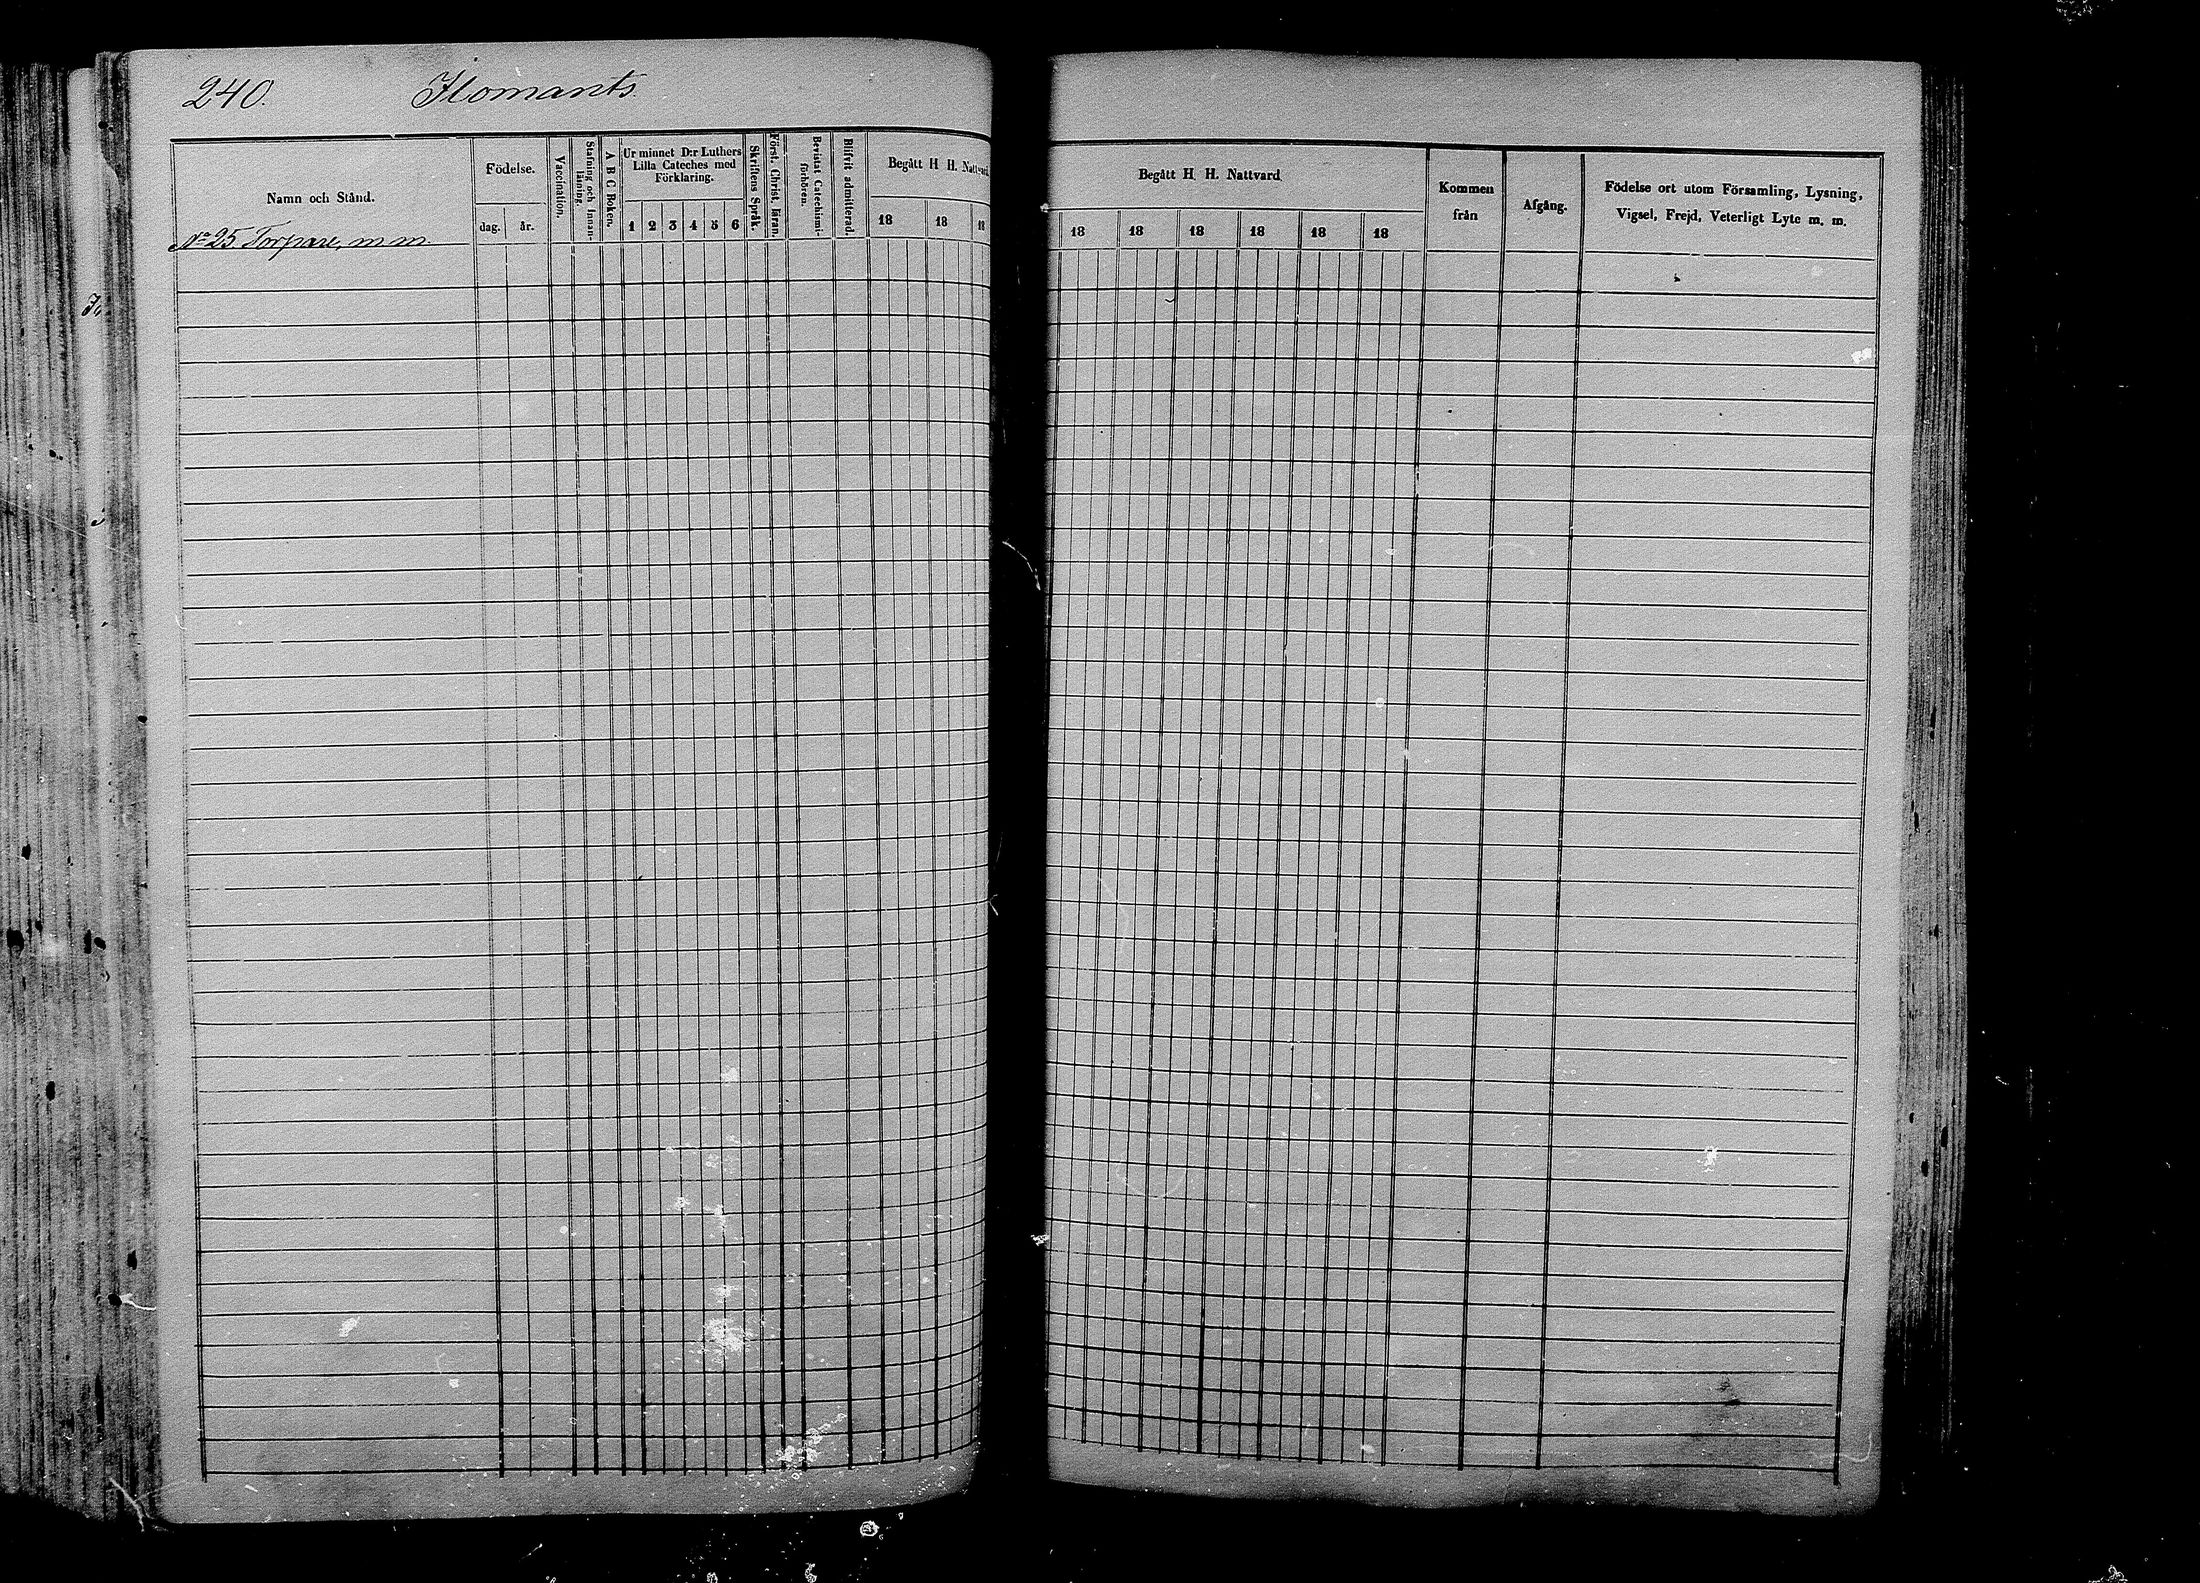 240. Ilomants.
Namn och Stånd.
Födelse.
dag.
år.
Vaccination.
Stafning och Innan-
läsning.
A B C Boken.
Ur minnet D:r Luthers
Lilla Cateches med
Förklaring.
1 2 3 4 5 6
Skriftens Språk.
Först. Christ. läran.
Bevistat Catechismi-
förhören.
Blifvit admitterad.
Begått H H. Nattvard.
18 18 18
No 25 Torpare, m m.
Begått H. H. Nattvard
18 18 18 18 18 18
Kommen
från
Afgång.
Födelse ort utom Församling, Lysning,
Vigsel, Frejd, Veterligt Lyte m. m.